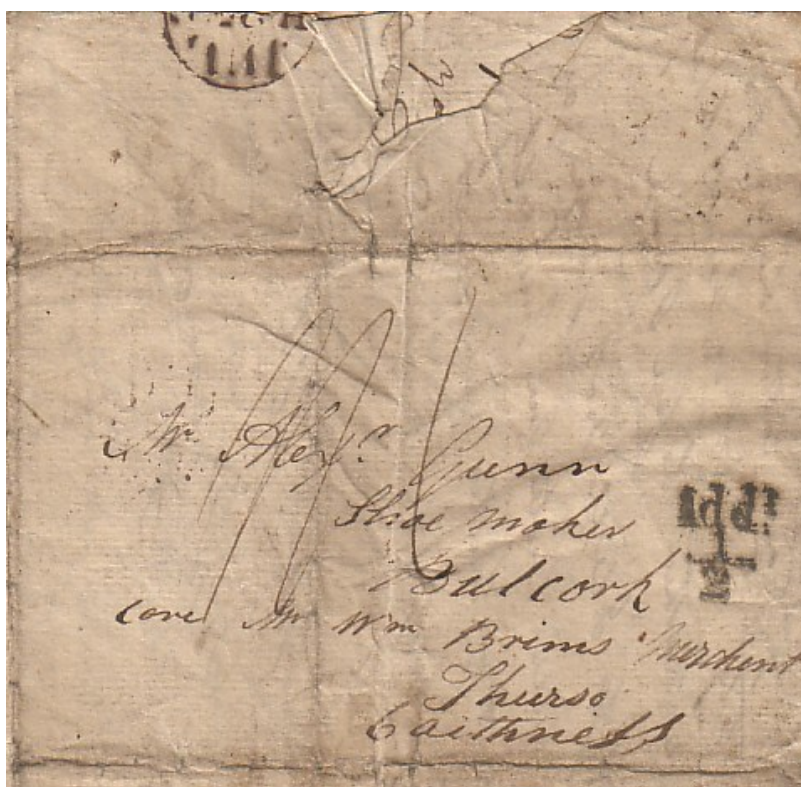 Mr Alexr Gunn
Shoe maker
Bulcork
Care Mr Wm Brims Merchent
Thurso
Caithness
Addl
1/2